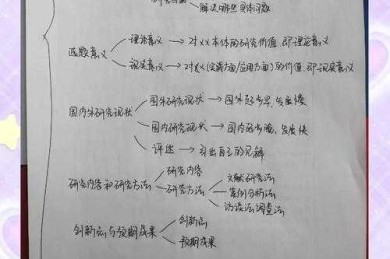 解决哪些具体问题
理论意义 → 对XX本体的研究价值,即理论意义
选题意义
现实意义 → 对X(实践方面/应用方面)的价值,即现实意义
国外研究现状 → 国外起步早,发展慢
国内外研究现状
国内研究现状 → 国内起步晚,发展快
评述 → 引出自己的见解
研究内容
研究内容和研究方法
研究方法
文献研究法
案例分析法
访谈法调查法
创新点
创新点与预期成果
预期成果